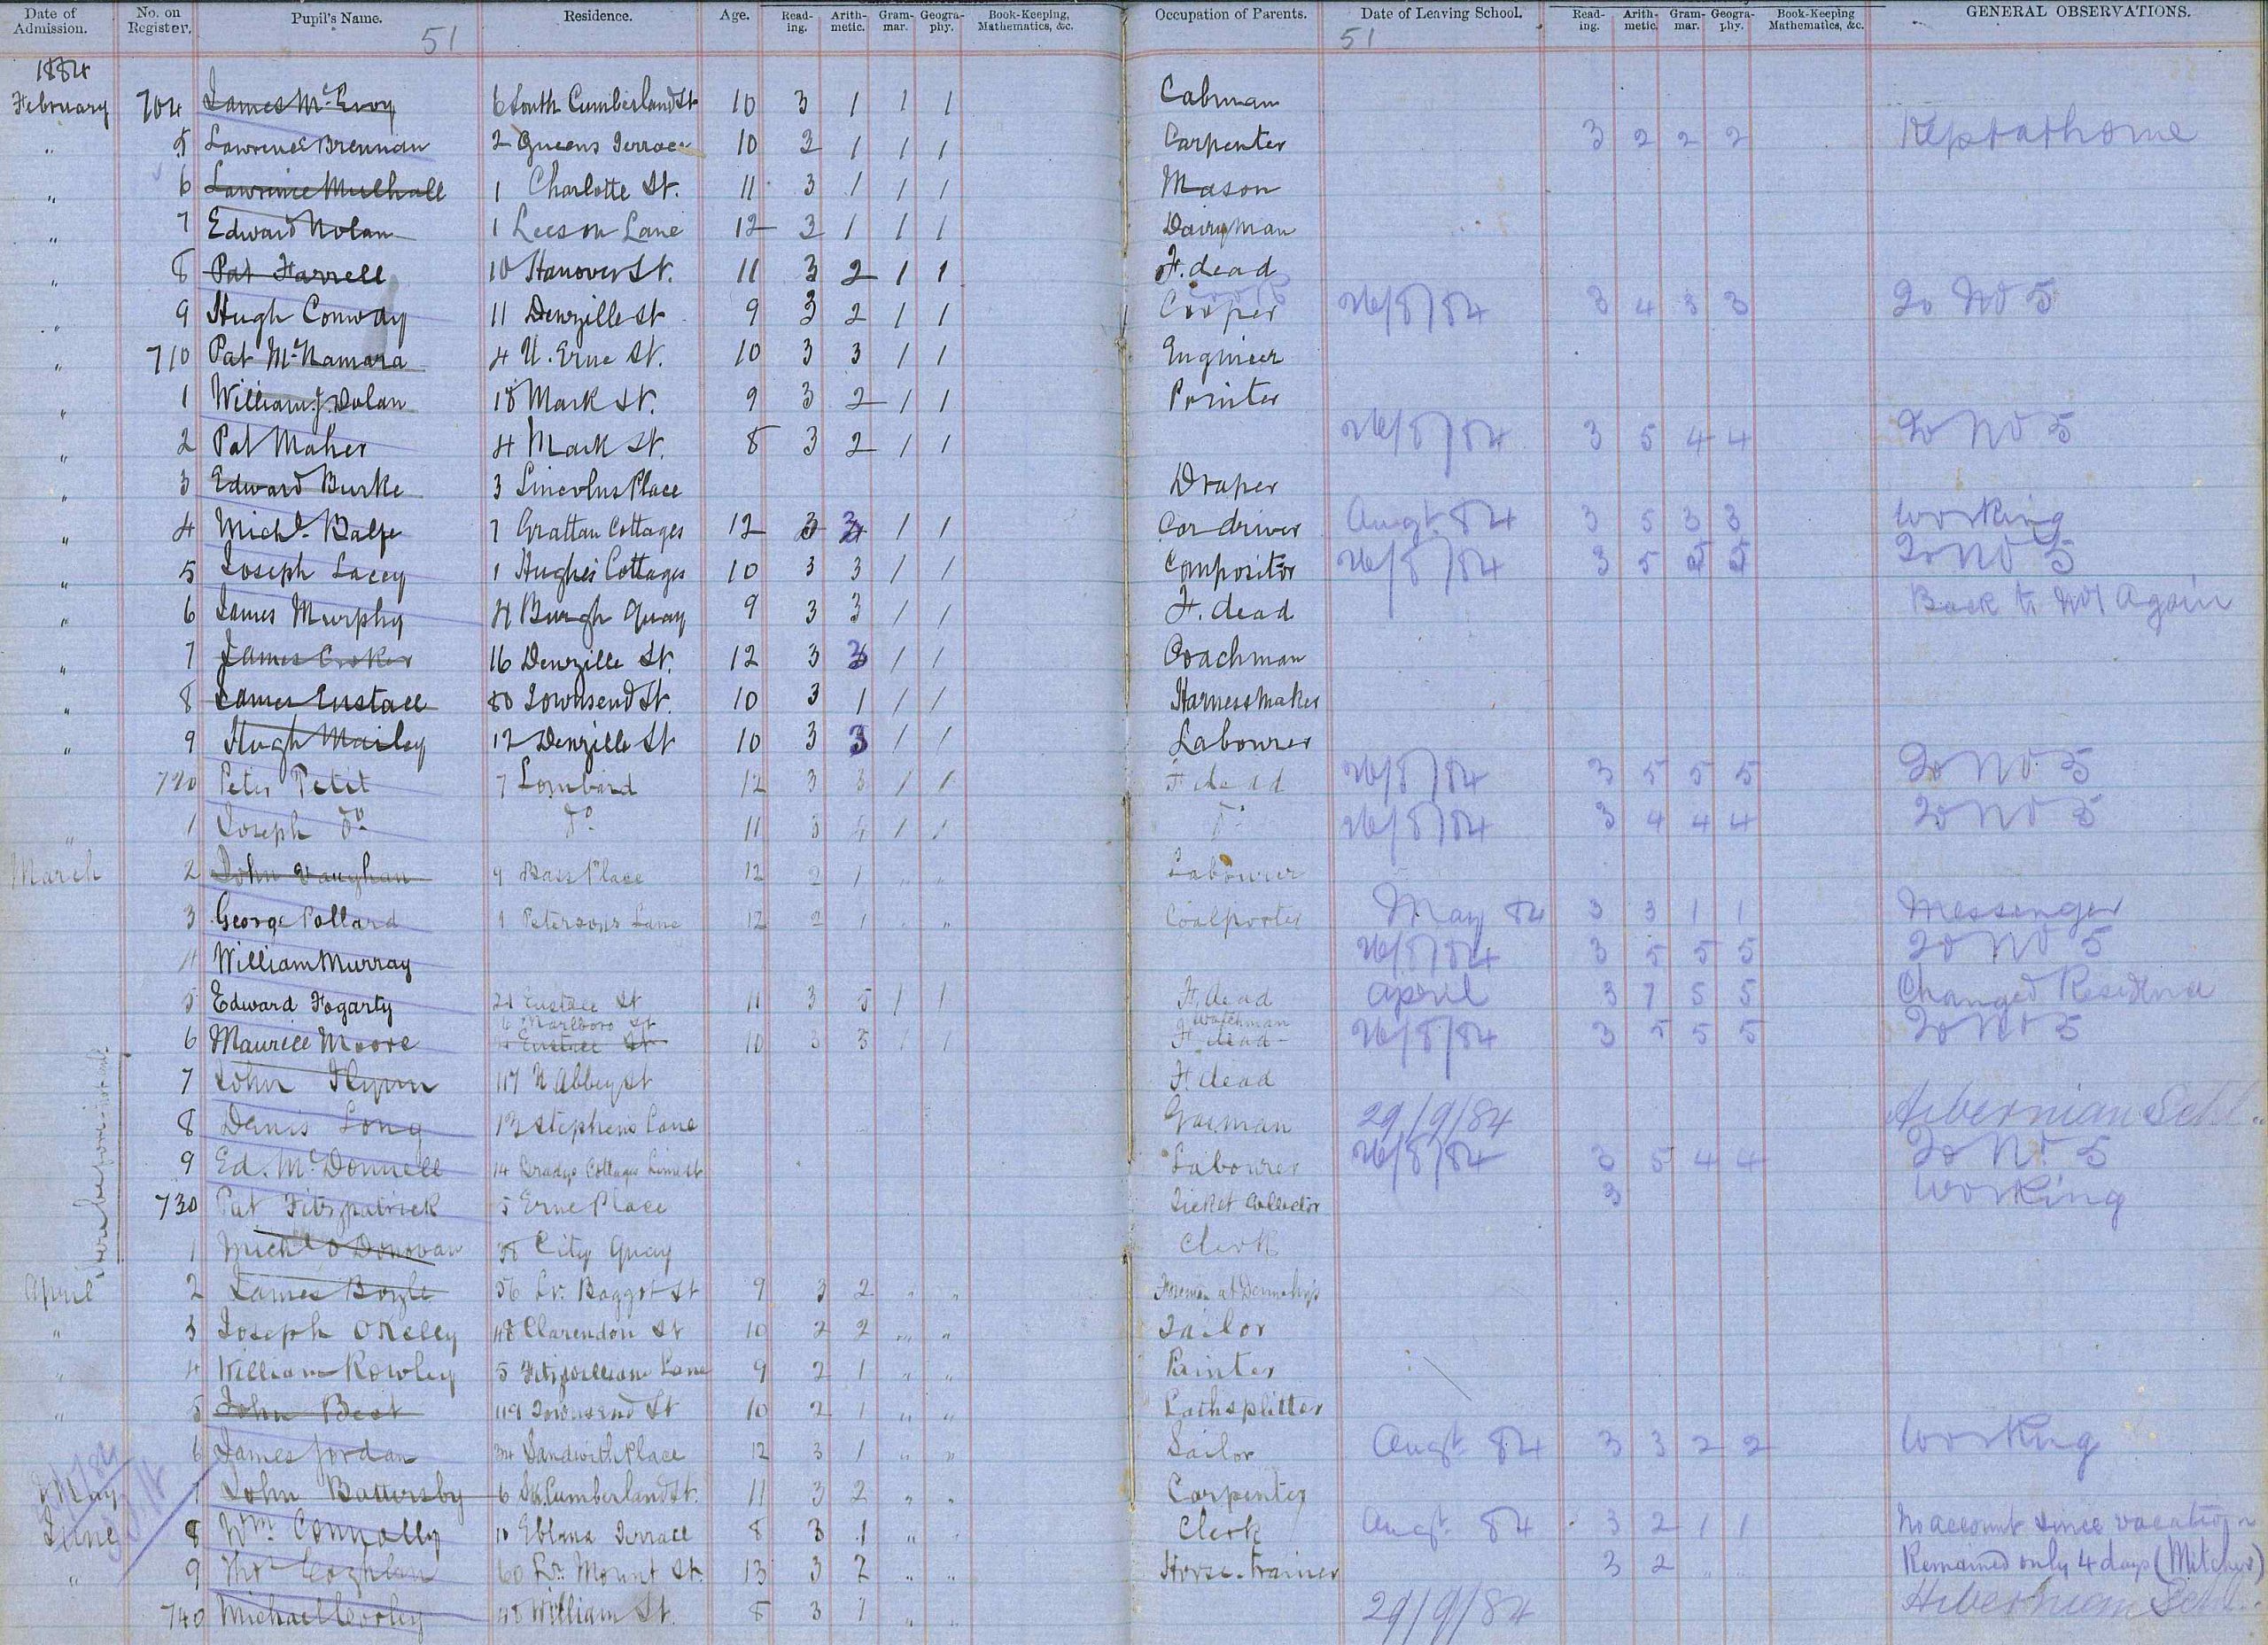 Date of Admission. No. on Register. Pupil's Name. Residence. Age. Read-ing. Arith-metic. Gram-mar. Geogra-phy. Book-Keeping, Mathematics, &c. Occupation of Parents. Date of Leaving School. Read-ing. Arith-metic. Gram-mar. Geogra-phy. Book-Keeping Mathematics, &c. GENERAL OBSERVATIONS.
51 51
1884
February 704 James McEvoy 6 South Cumberland St 10 3 1 1 1 Cabman
" 5 Lawrence Brennan 2 Queens Terrace 10 3 1 1 1 Carpenter 3 2 2 2 Kept at home
" 6 Lawrence Mulhall 1 Charlotte St. 11 3 1 1 1 Mason
" 7 Edward Nolan 1 Leeson Lane 12 3 1 1 1 Dairyman
" 8 Pat Farrell 10 Hanover St. 11 3 2 1 1 F. dead
" 9 Hugh Conway 11 Denzille St 9 3 2 1 1 Cooper 26/8/84 3 4 3 3 To No 5
" 710 Pat McNamara 4 U. Erne St. 10 3 3 1 1 Engineer
" 1 William J. Dolan 18 Mark St. 9 3 2 1 1 Painter
" 2 Pat Maher 4 Mark St. 8 3 2 1 1 26/8/84 3 5 4 4 To No 5
" 3 Edward Burke 3 Lincolns Place Draper
" 4 Michl. Balfe 7 Grattan Cottages 12 3 3 1 1 Car driver Augt. 84 3 5 3 3 Working
" 5 Joseph Lacey 1 Hughes Cottages 10 3 3 1 1 Compositor 26/8/84 3 5 5 5 To No 5
" 6 James Murphy 4 Burgh Quay 9 3 3 1 1 F. dead Back to No 1 Again
" 7 James Croker 16 Denzille St. 12 3 3 1 1 Coachman
" 8 James Eustace 80 Townsend St. 10 3 1 1 1 Harnessmaker
" 9 Hugh Mailey 12 Denzille St 10 3 3 1 1 Labourer
720 Peter Petit 7 Lombard 12 3 3 1 1 F dead 26/8/84 3 5 5 5 To No 5
" 1 Joseph Do Do 11 3 4 1 1 Do 26/8/84 3 4 4 4 To No 5
March 2 John Vaughan 9 Bass Place 12 2 1 " " Labourer
3 George Pollard 1 Petersons Lane 12 2 1 " " Coalporter May 84 3 3 1 1 Messenger
4 William Murray 26/8/84 3 5 5 5 To No 5
5 Edward Fogarty 21 Eustace St 11 3 5 1 1 F. dead April 3 7 5 5 Changed Residence
6 Marlboro St Watchman
6 Maurice Moore Eustace St 10 3 5 1 1 F. dead 26/8/84 3 5 5 5 To No 5
7 John Flynn 117 U Abbey St F. dead
8 Denis Long 13 Stephens Lane Gasman 29/9/84 Hibernian Schl.
9 Ed. McDonnell 14 Gradys Cottages Lime St Labourer 26/8/84 3 5 4 4 To No. 5
730 Pat Fitzpatrick 5 Erne Place Ticket Collector 3 Working
1 Michl O Donovan 38 City Quay Clerk
April 2 James Boyle 56 Lr. Baggot St 9 3 2 " " Foreman at
" 3 Joseph OKelly 48 Clarendon St 10 2 2 " " Tailor
" 4 William Rowley 5 Fitzwilliam Lane 9 2 1 " " Painter
" 5 John Best 119 Townsend St 10 2 1 " " Lathsplitter
6 James Jordan 34 Sandwith Place 12 3 1 " " Sailor Augt. 84 3 3 2 2 Working
May 7 John Battersby 6 Sth. Cumberland St. 11 3 2 " " Carpenter
June 8 Wm. Connolly 10 Eblana Terrace 8 3 1 " Clerk Augt. 84 3 2 1 1 No account since vacation
" 9 Thos Coghlan 60 Lr. Mount St. 13 3 2 " " Horse-trainer 3 2 Remained only 4 days (Mitcher)
740 Michael Corley 48 William St. 8 3 1 " " 29/9/84 Hibernian Schl.